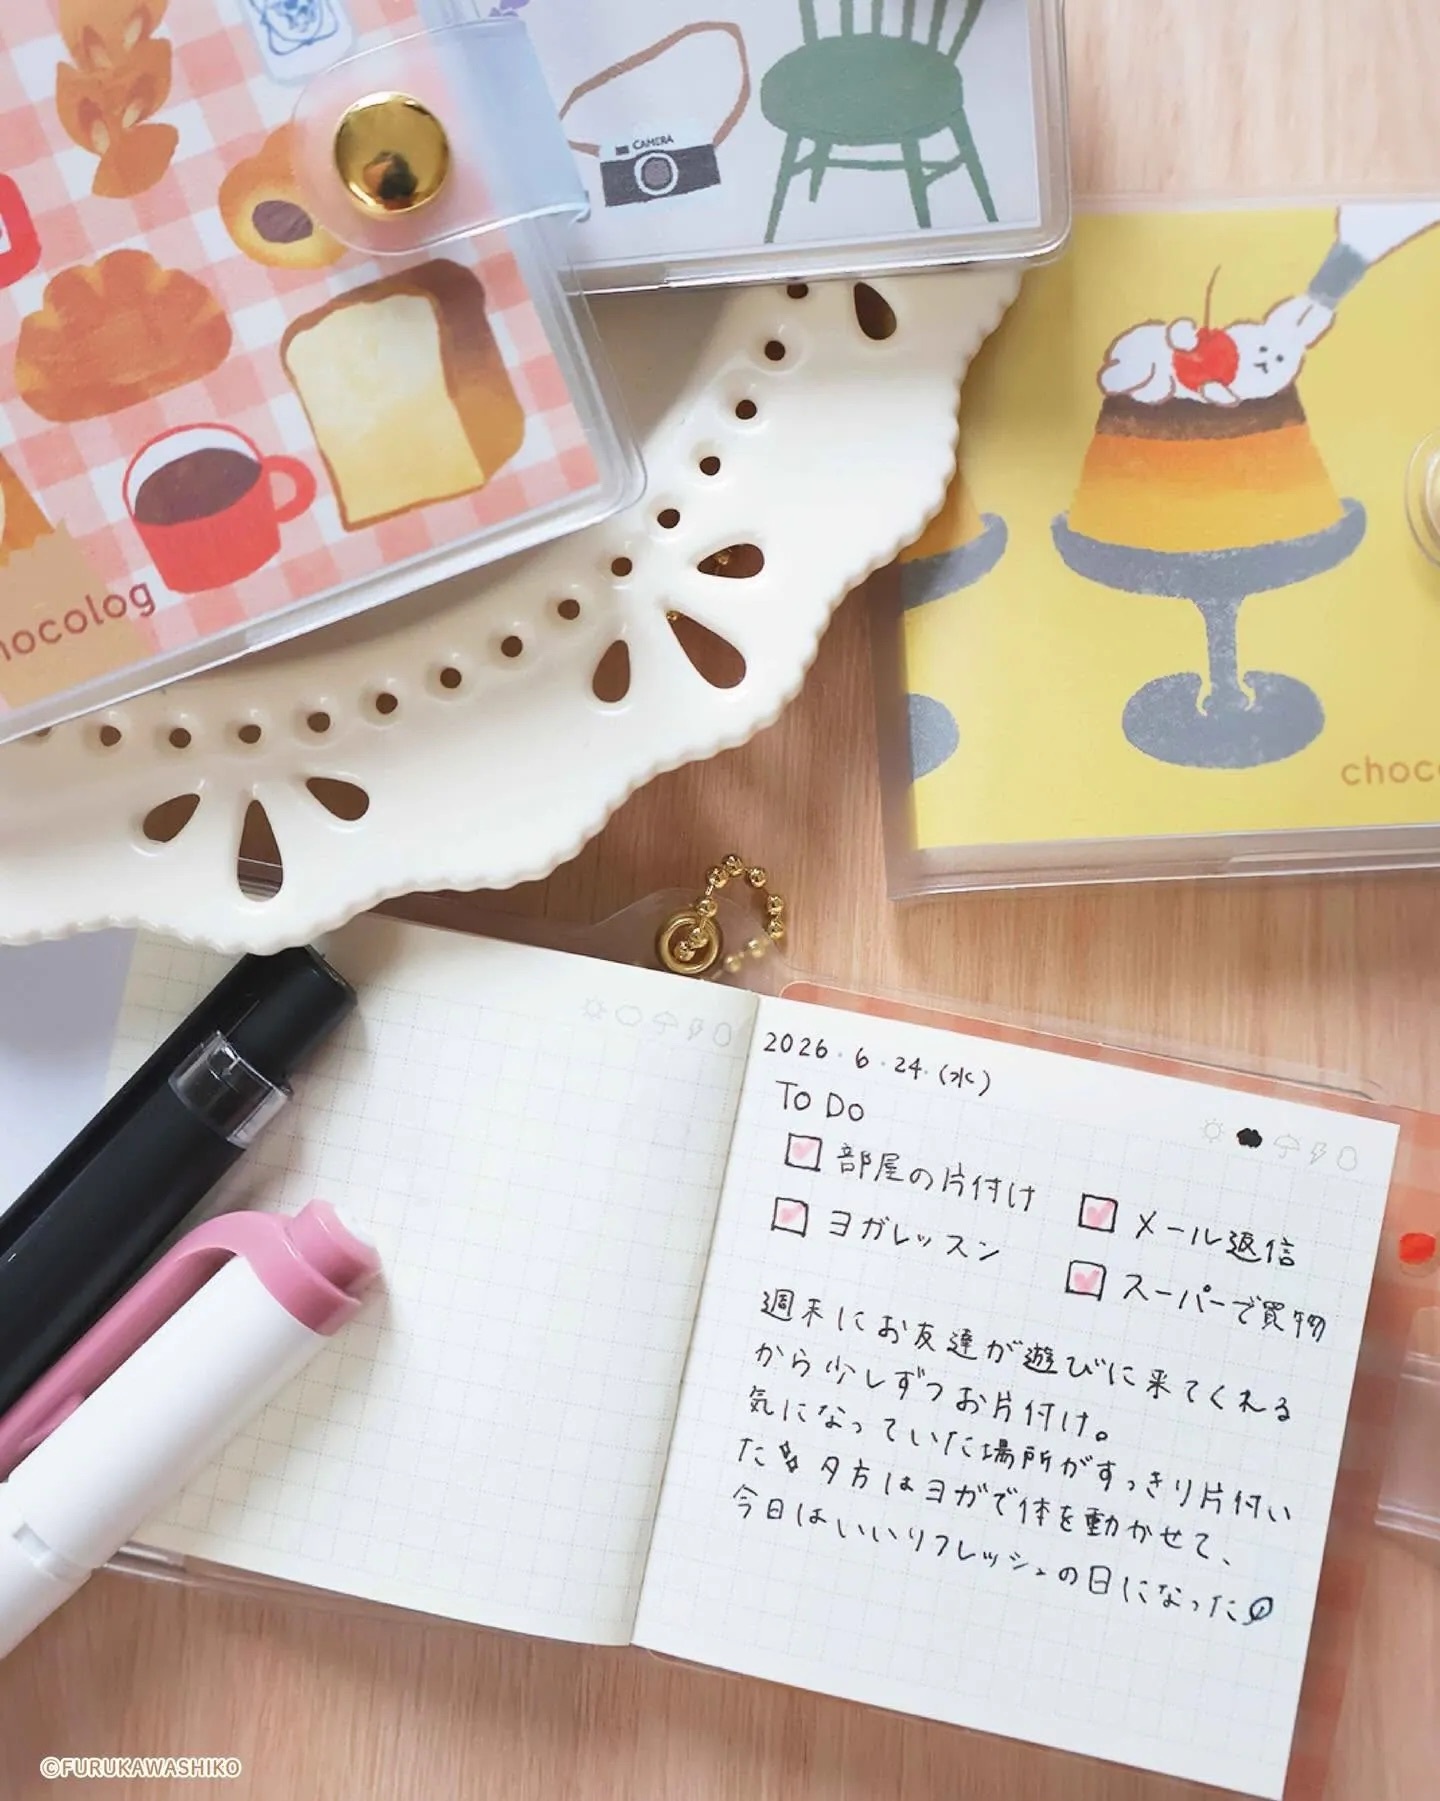 CAMERA
hocolog
choc
2026.6.24.(水)
To Do
部屋の片付け
メール返信
ヨガレッスン
スーパーで買物
週末にお友達が遊びに来てくれる
から少しずつお片付け。
気になっていた場所がすっきり片付い
た 夕方はヨガで体を動かせて、
今日はいいリフレッシュの日になった
©FURUKAWASHIKO